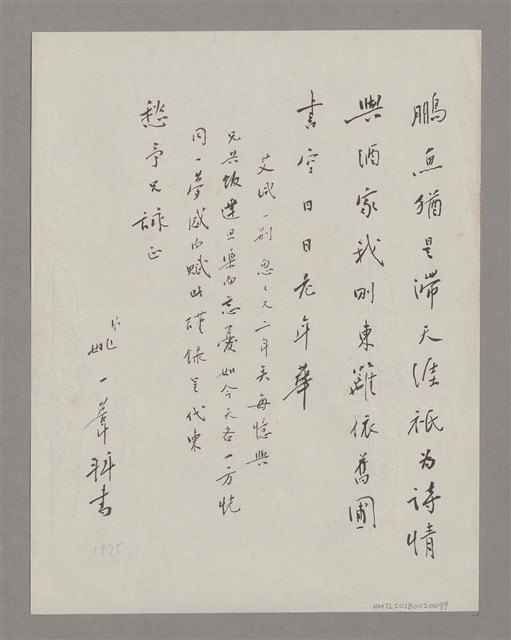 鵬魚猶是滯天涯祇为詩情
與酒家我則東籬依舊圃
書空日日老年華
艾城一別忽々又二年矣每憶與
兄共飯達旦樂而忘憂如今天各一方恍
同一夢感而賦此謹錄呈代柬
愁予兄詠正
弟姚一葦拜書
1975
NMTL20180020099